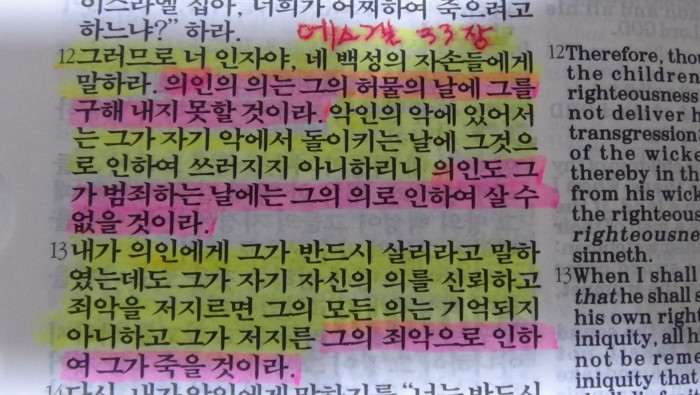 이스라엘 집아, 너희가 어찌하여 죽으려고
하느냐?” 하라.
에스겔 33장
12그러므로 너 인자야, 네 백성의 자손들에게
말하라. 의인의 의는 그의 허물의 날에 그를
구해 내지 못할 것이라. 악인의 악에 있어서
는 그가 자기 악에서 돌이키는 날에 그것으
로 인하여 쓰러지지 아니하리니 의인도 그
가 범죄하는 날에는 그의 의로 인하여 살 수
없을 것이라.
13내가 의인에게 그가 반드시 살리라고 말하
였는데도 그가 자기 자신의 의를 신뢰하고
죄악을 저지르면 그의 모든 의는 기억되지
아니하고 그가 저지른 그의 죄악으로 인하
여 그가 죽을 것이라.
14다시, 내가 악인에게 말하기를 “너는 반드시
12Therefore, thou
the children
righteousness
not deliver h
transgression
of the wicke
thereby in th
from his wick
the righteou
righteousne
sinneth.
13When I shall
that he shall s
his own right
iniquity, all h
not be reme
iniquity that